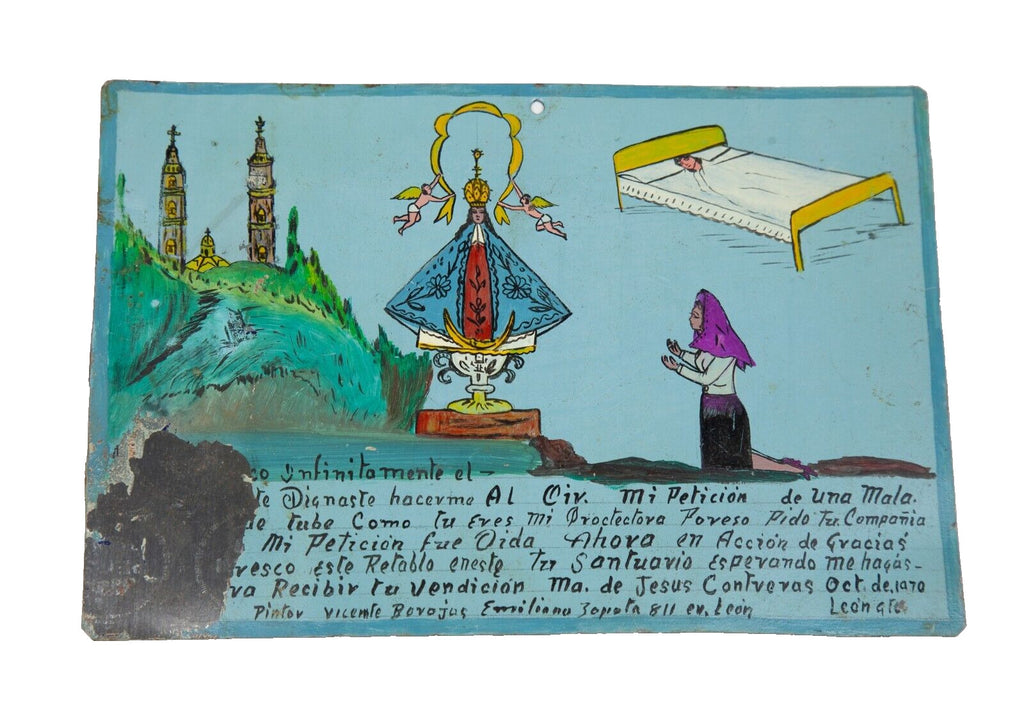 co Infinitamente el-
te Dignaste hacerme Al Oir. Mi Petición de una Mala.
de tube Como tu eres mi Proctectora Poreso Pido tu Compañia
Mi Petición fue Oida Ahora en Acción de Gracias
resco este Retablo eneste tu Santuario esperando mehagas-
ra Recibir tu vendición Ma. de Jesus Contreras Oct. de.1970
Pintor vicente Barajas Emiliano Zapata 811 en. León Leon gto.